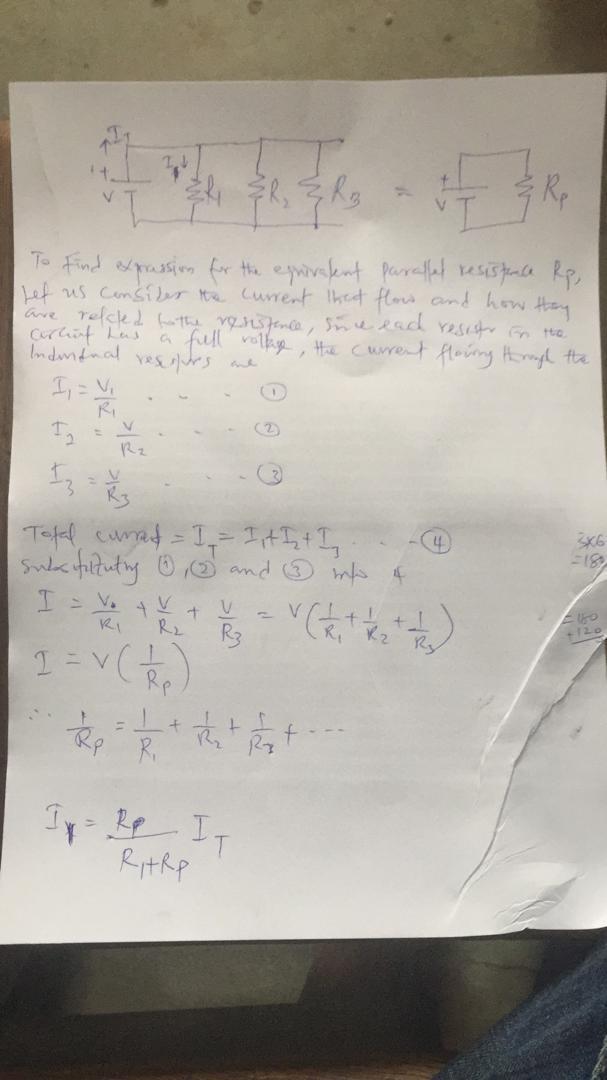 I
+
V
I₁↓
R₁
R₂
R₃
=
+
V
Rp
To Find expression for the equivalent parallel resistance Rp,
Let us consider the current that flow and how they
are related to the resistance, since each resistor in the
circuit has a full voltage, the current flowing through the
Individual resistors are
I₁ = V₁/R₁ . . . . ①
I₂ = V/R₂ . . . . ②
I₃ = V/R₃ . . . . ③
Total current = I_T = I₁+I₂+I₃ . . . . ④
Substituting ①, ② and ③ into 4
I = V/R₁ + V/R₂ + V/R₃ = V(1/R₁ + 1/R₂ + 1/R₃)
I = V(1/Rp)
∴ 1/Rp = 1/R₁ + 1/R₂ + 1/R₃ + ----
= Rp/(R₁+Rp) I_T
3x6
=180
=180
+120